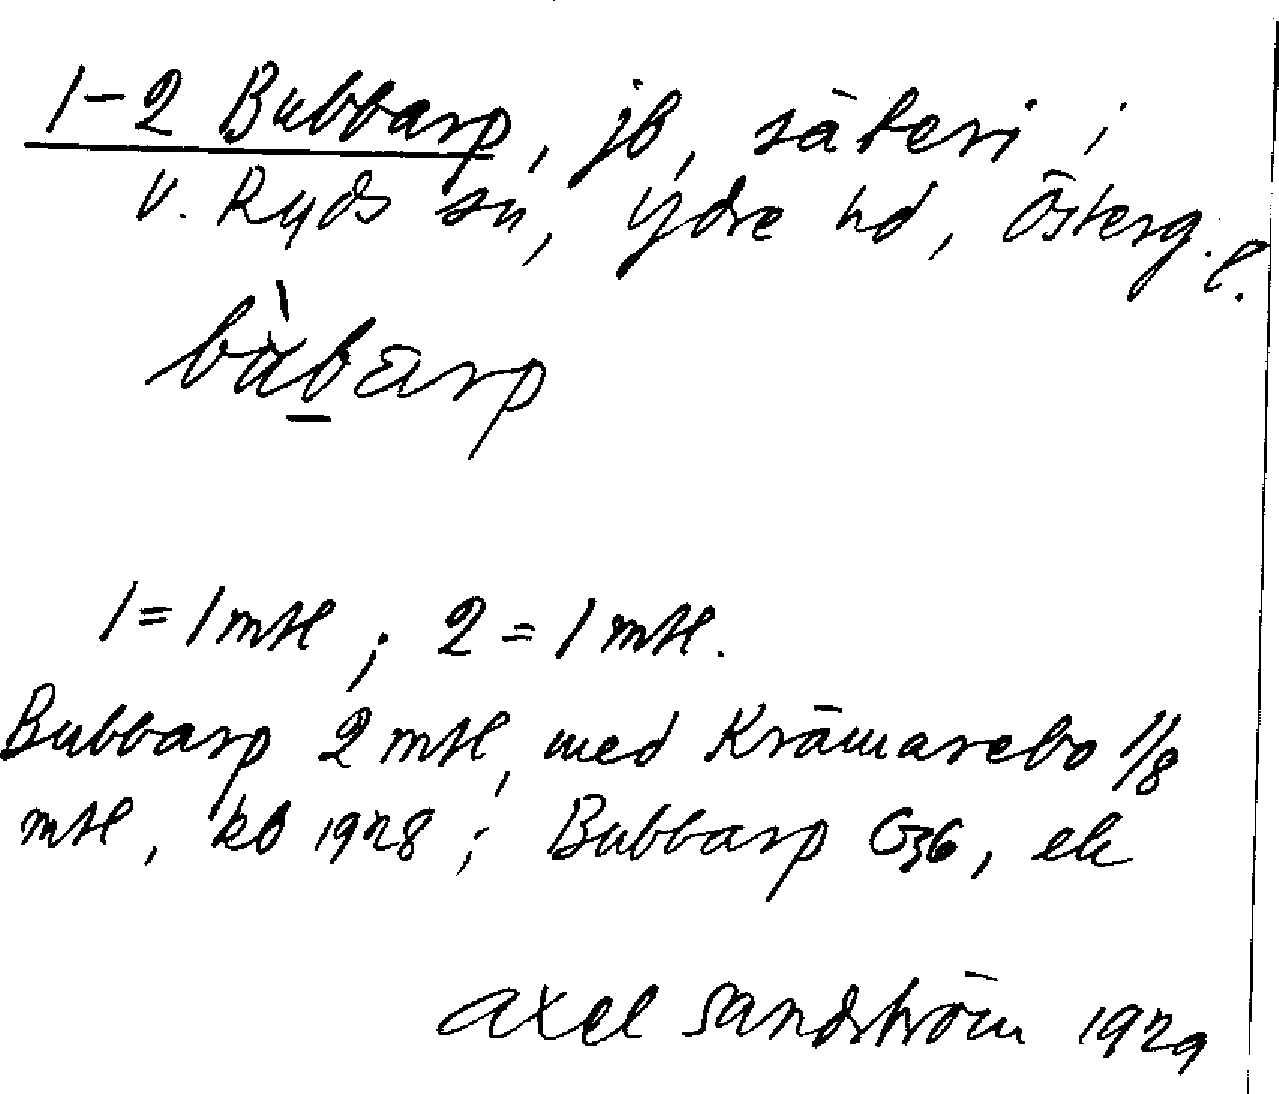 1-2 Bubbarp, jb, säteri i
V. Ryds sn, Ydre hd, Österg. l.
bùbarp
1 = 1 mtl ; 2 = 1 mtl.
Bubbarp 2 mtl, med Krämarebo 1/8
mtl, kb 1928 ; Bubbarp G36, ek
Axel Sandström 1929